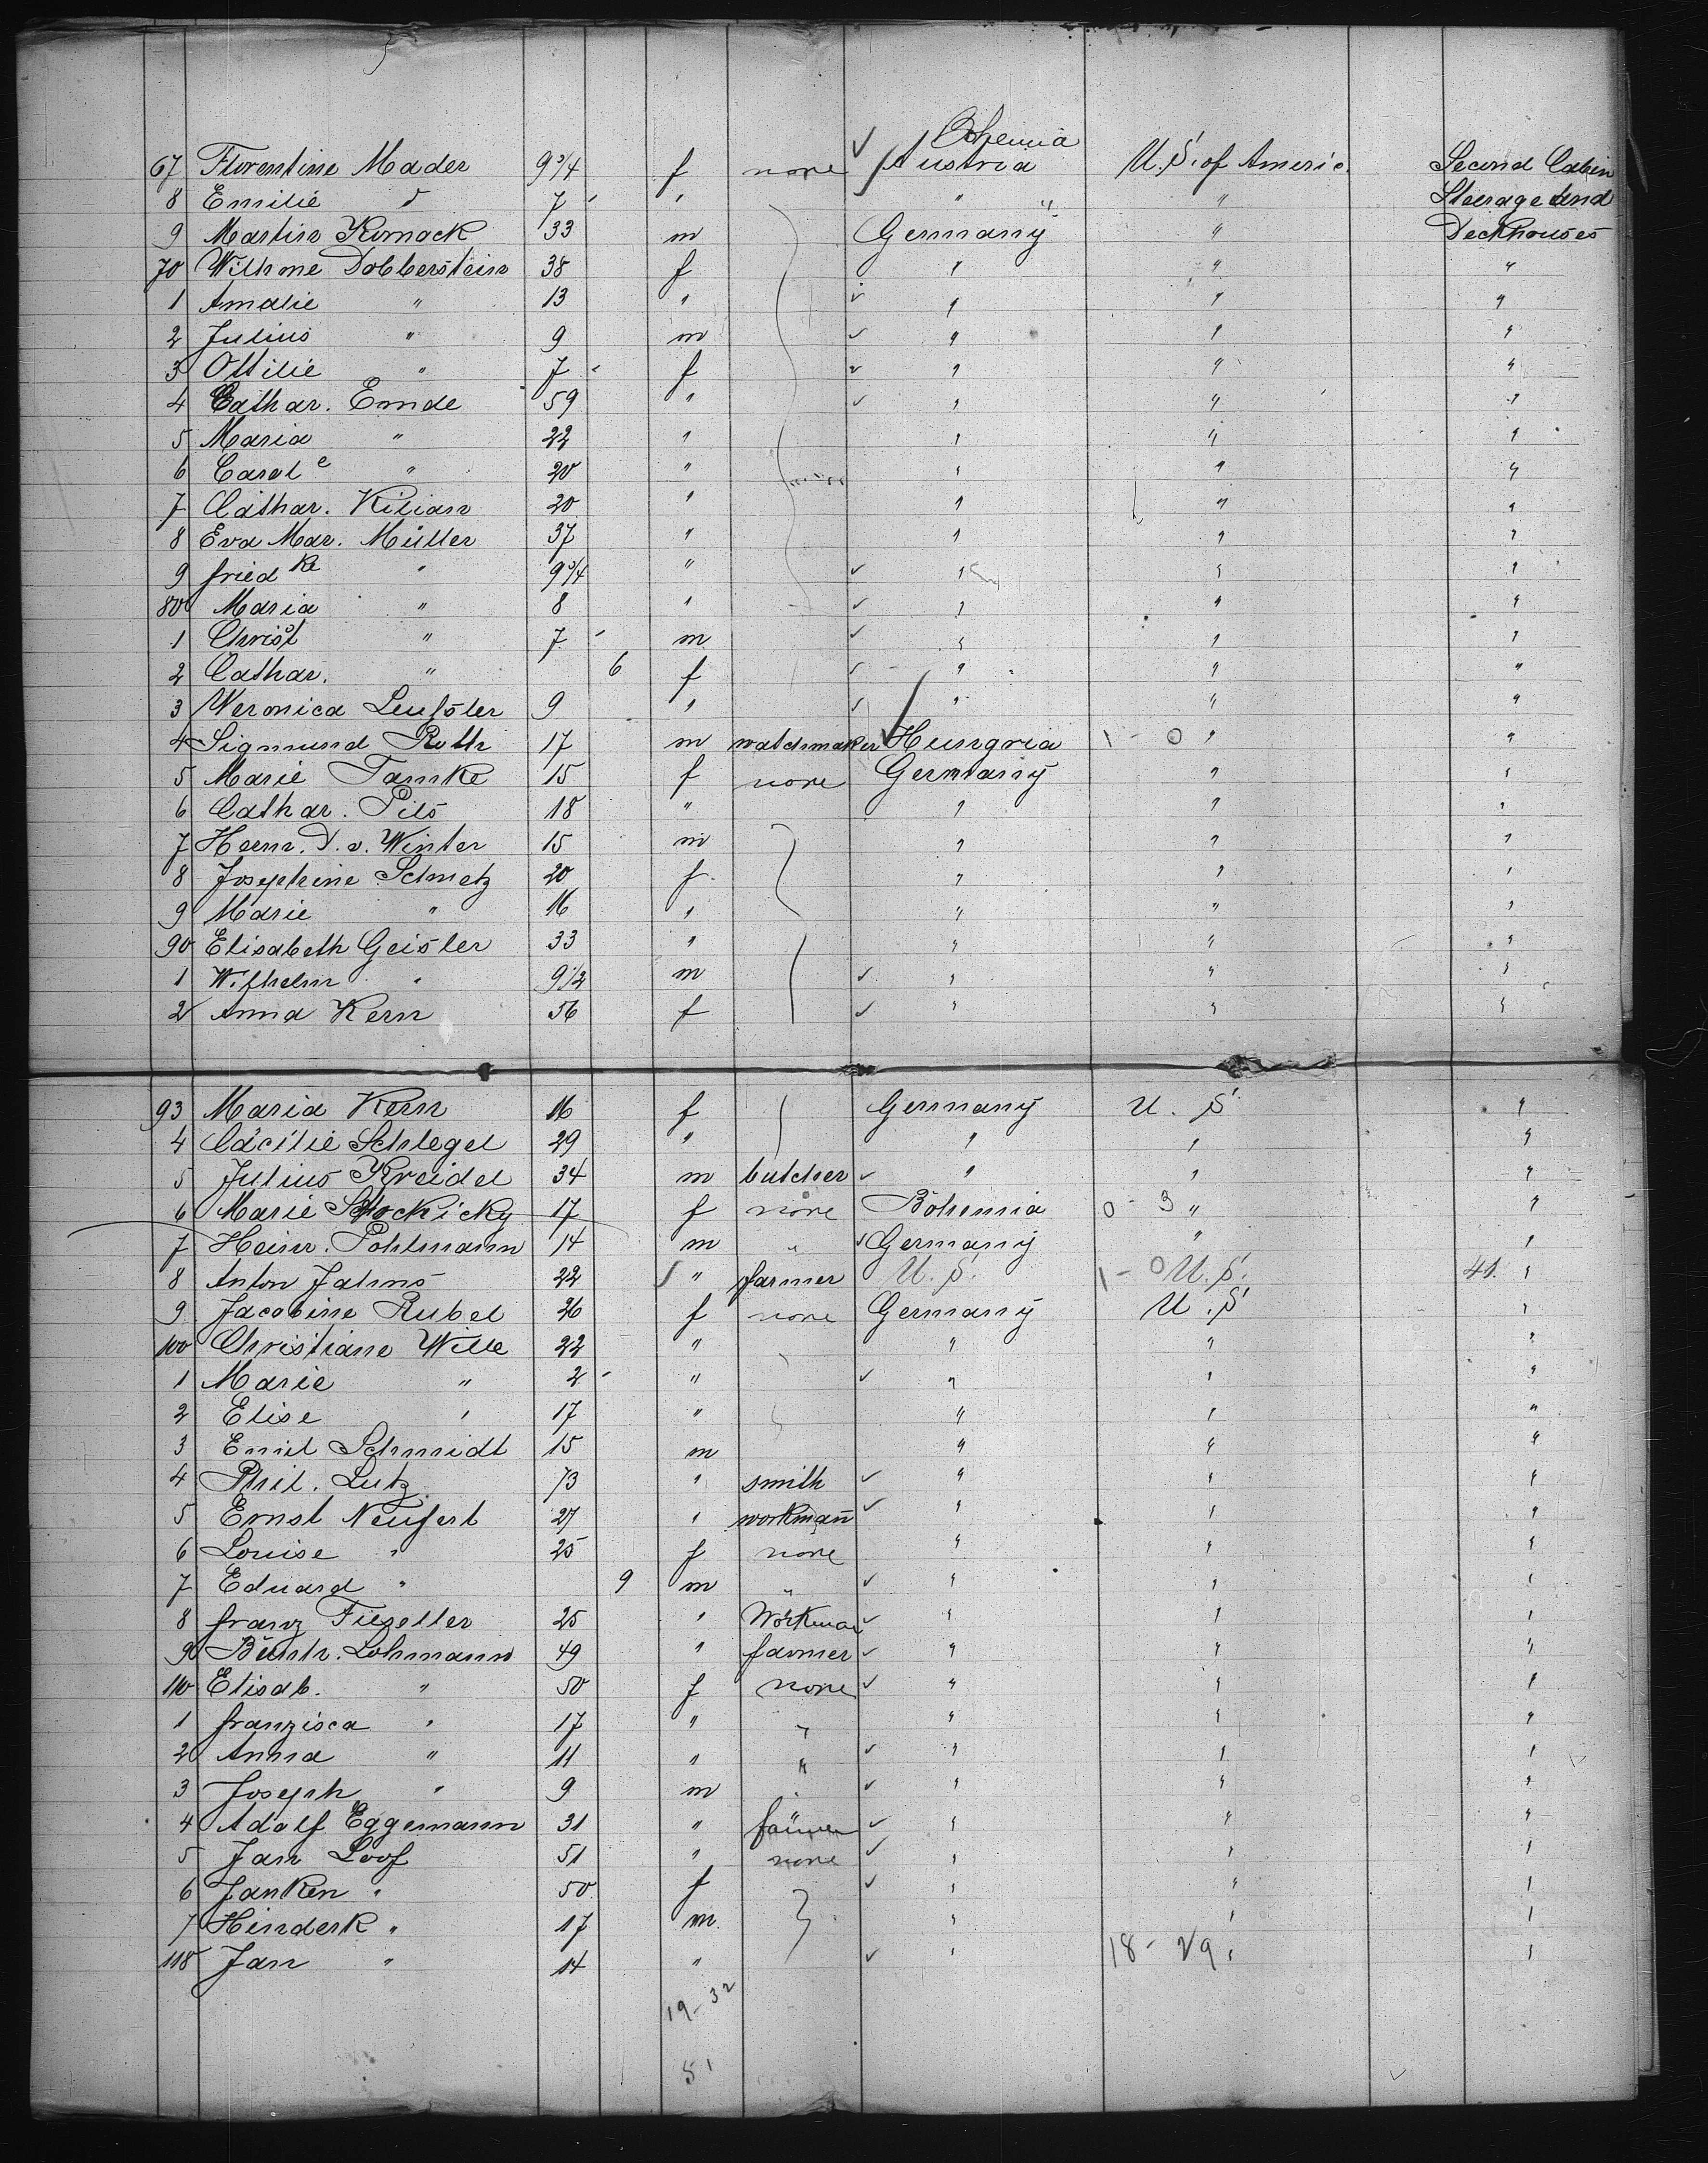 Bohemia
67 Florentine Mader 9 3/4 f none Austria U.S. of Americ. Second Cabin
8 Emilie d 7 " " " Steerage and
9 Martin Komack 33 m Germany " Deckhouses
70 Wilhme Dobberstein 38 f " " "
1 Amalie " 13 " " " "
2 Julius " 9 m " " "
3 Ottilie " 7 f " " "
4 Cathar. Emde 59 " " " "
5 Maria " 22 " " " "
6 Carole " 20 " " " "
7 Cathar. Kilian 20 " " " "
8 Eva Mar. Müller 37 " " " "
9 friedke " 9 3/4 " " " "
80 Maria " 8 " " " "
1 Christ " 7 m " " "
2 Cathar. " 6 f " " "
3 Weronica Leussler 9 " " " "
4 Sigmund Roth 17 m watchmaker Hungria 1 - 0 " "
5 Marie Tamke 15 f none Germany " "
6 Cathar. Pils 18 " " " "
7 Heinr. D. v. Winter 15 m " " "
8 Josephine Schmetz 20 f " " "
9 Marie " 16 " " " "
90 Elisabeth Geisler 33 " " " "
1 Wilhelm " 9 1/2 m " " "
2 Anna Kern 56 f " " "
93 Maria Kern 16 f Germany U. S "
4 Cäcilie Schlegel 29 " " " "
5 Julius Kreidel 34 m butcher " " "
6 Marie 17 f none Böhemia 0 - 3 " "
7 Heinr. Pohlmann 14 m " Germany " "
8 Anton Jahns 22 " farmer U. S. 1 - 0 U. S. 41. "
9 Jacobine Rubel 26 f none Germany U. S "
100 Christiane Wille 22 " " " "
1 Marie " 2 " " " "
2 Elise " 17 " " " "
3 Emil Schmidt 15 m " " "
4 Phil. Lutz 73 " smith " " "
5 Ernst Neufert 27 " workmañ " " "
6 Louise " 25 f none " " "
7 Eduard " 9 m " " " "
8 franz Fieseller 25 " Workman " " "
9 Lohmann 49 " farmer " " "
110 Elisab. " 50 f none " " "
1 franzisca " 17 " " " " "
2 Anna " 11 " " " " "
3 Joseph " 9 m " " " "
4 Adolf Eggemann 31 " farmer " " "
5 Jan Loof 51 " none " " "
6 Janken " 50 f " " "
7 Hinderk " 17 m " " "
118 Jan " 14 " " 18 - 29 " "
19 - 32
51